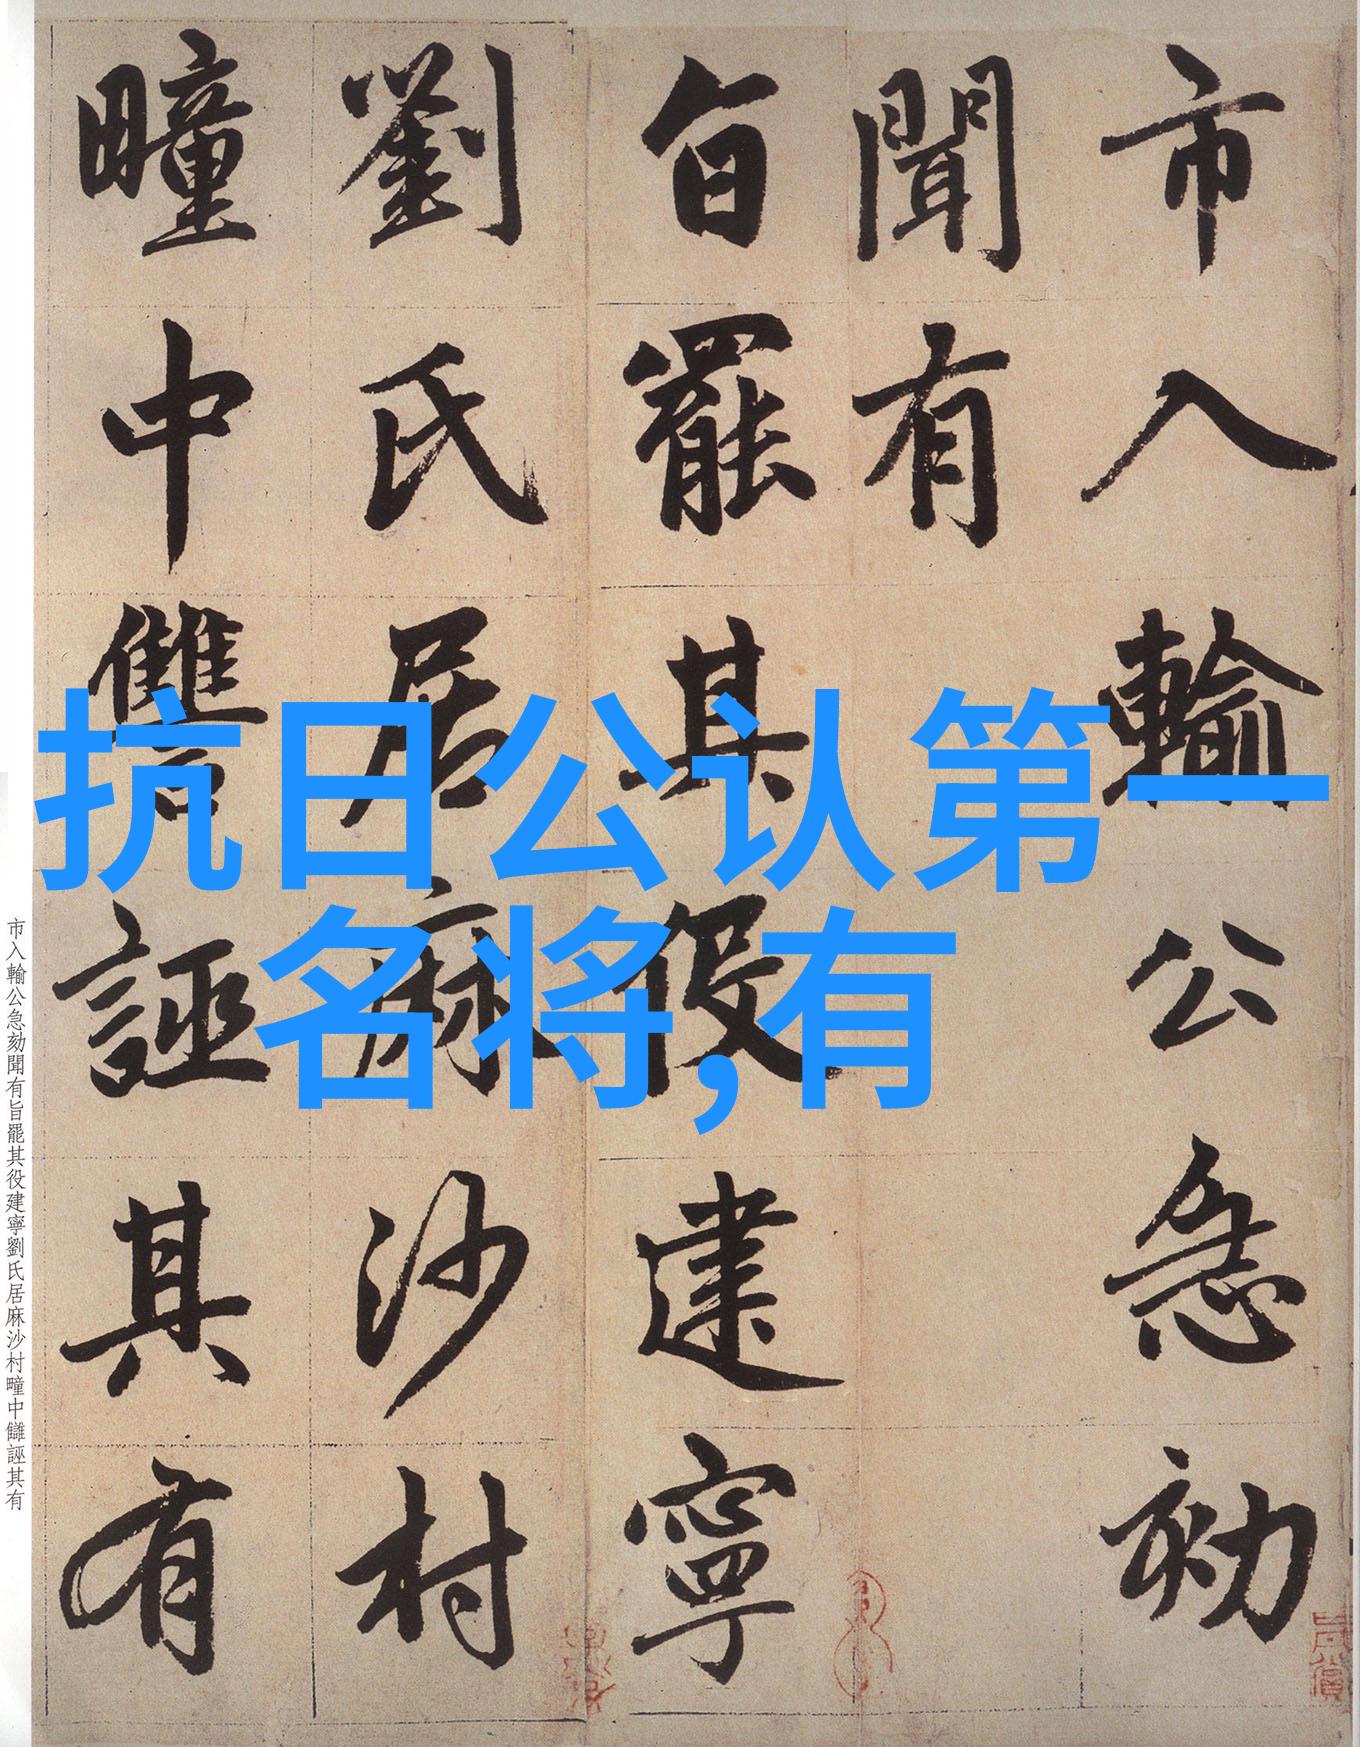 市入輸公急劾
聞有
旨罷其役建寧
劉氏居麻沙村
疃中讐誣其有
抗日公认第一
名将,有
市入輸公急劾聞有旨罷其役建寧劉氏居麻沙村疃中讎誣其有